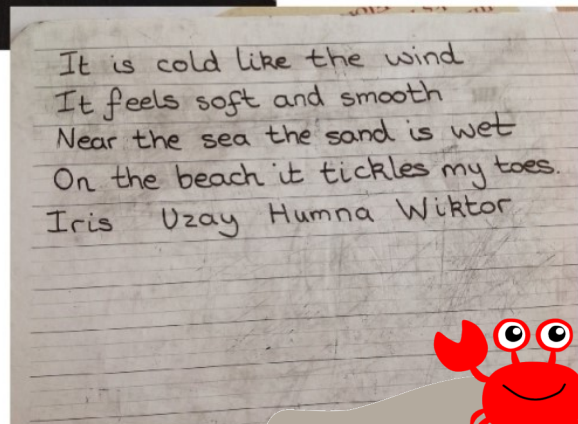 It is cold like the wind
It feels soft and smooth
Near the sea the sand is wet
On the beach it tickles my toes.
Iris Uzay Humna Wiktor